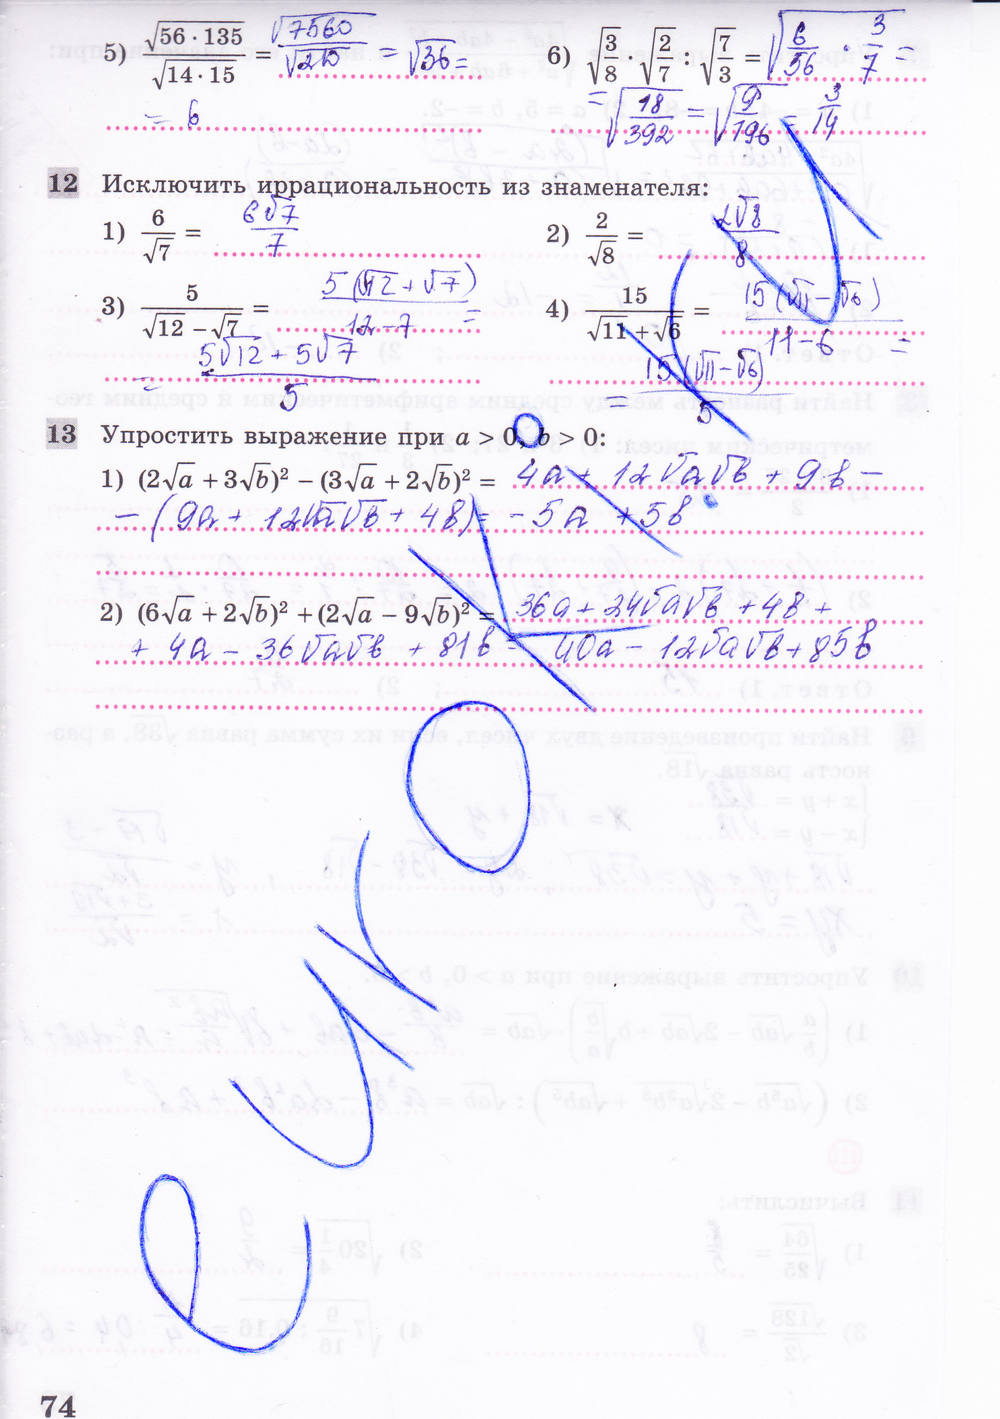 5) √(56 · 135) / √(14 · 15) = √7560 / √210 = √36 =
= 6
6) √(3/8) · √(2/7) : √(7/3) = √(6/56 · 3/7) =
= √(18/392) = √(9/196) = 3/14
12 Исключить иррациональность из знаменателя:
1) 6/√7 = 6√7/7
2) 2/√8 = 2√8/8
3) 5/(√12 − √7) = 5(√12 + √7)/(12 − 7) =
= (5√12 + 5√7)/5
4) 15/(√11 + √6) = 15(√11 − √6)/(11 − 6) =
= 15(√11 − √6)/5
13 Упростить выражение при a > 0, b > 0:
1) (2√a + 3√b)² − (3√a + 2√b)² = 4a + 12√a√b + 9b −
− (9a + 12√a√b + 4b) = −5a + 5b
2) (6√a + 2√b)² + (2√a − 9√b)² = 36a + 24√a√b + 4b +
+ 4a − 36√a√b + 81b = 40a − 12√a√b + 85b
74